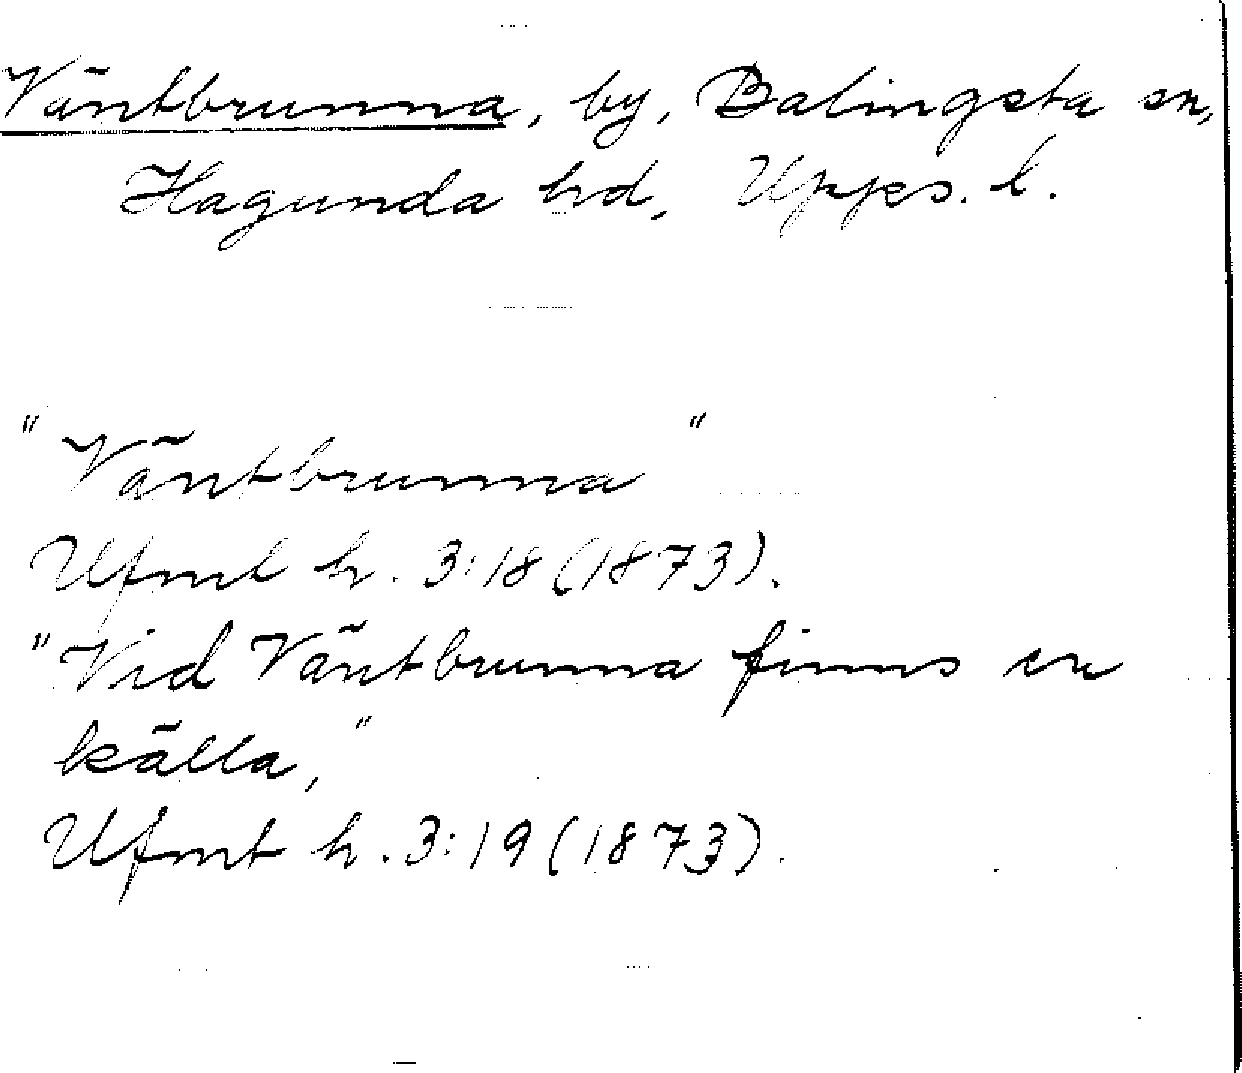 Väntbrunna, by, Balingsta sn,
Hagunda hd, Upps. l.
"Väntbrunna"
Ufmt h. 3:18 (1873).
"Vid Väntbrunna finns en
källa,"
Ufmt h. 3:19 (1873).